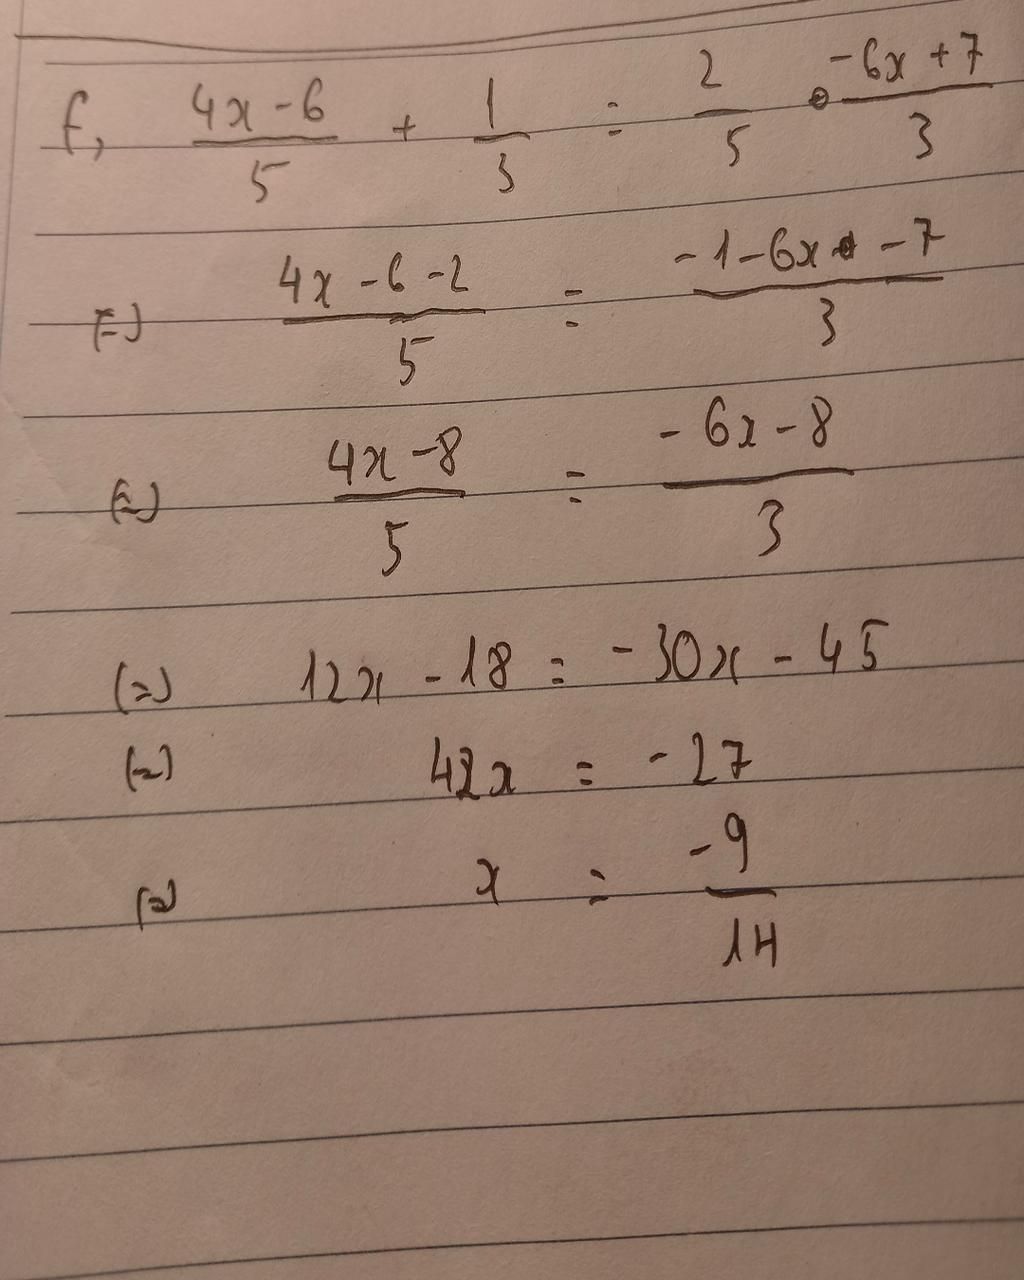 f, (4x-6)/5 + 1/3 = 2/5 • (-6x+7)/3
(=) (4x-6-2)/5 = (-1-6x-7)/3
(=) (4x-8)/5 = (-6x-8)/3
(=) 12x - 18 = -30x - 45
(=) 42x = -27
(=) x = -9/14